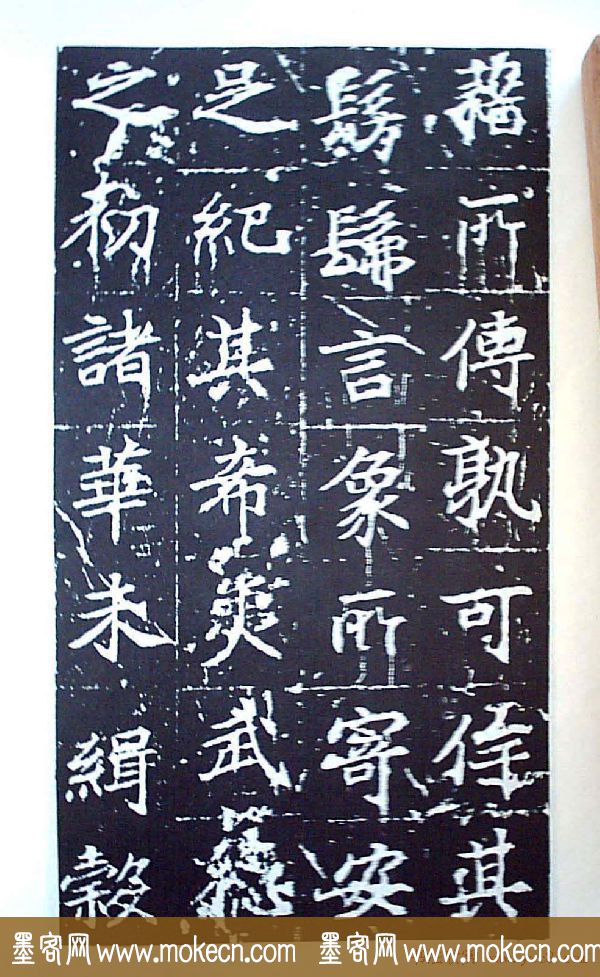 藉所傳孰可侔其
髣髴言象所寄安
足紀其希夷武德
之初諸華未緝穀
墨客网 www.mokecn.com 墨客网 www.mokecn.com